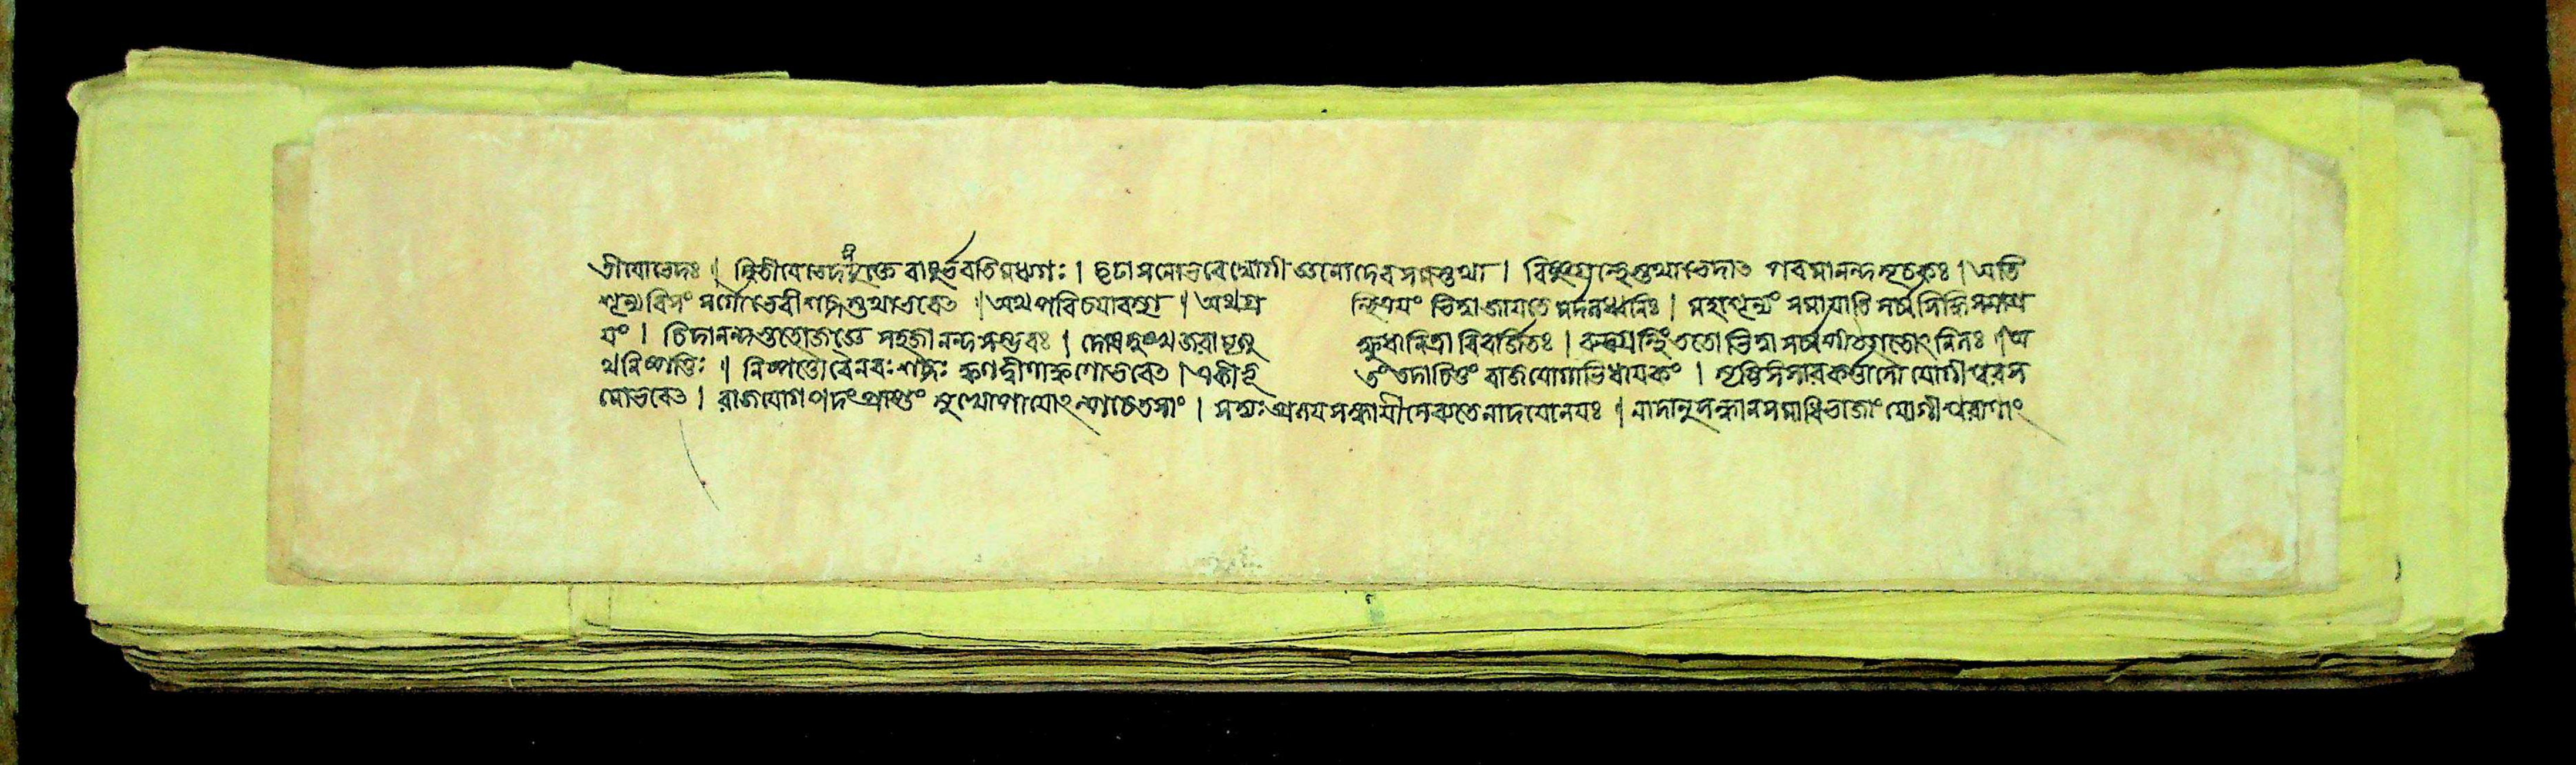 তীবোভেদঃ । দ্বিতীয়েভেদসংযুক্তে বায়ুর্ভবতিমধ্যগঃ । দৃঢাসনোভবেদ্যোগী জ্ঞানাদেবসমস্তথা । বিষ্ণুগ্রন্থেস্তথাভেদাত পরমানন্দসূচকঃ । অতি
শূন্যবিমং সর্গোভেরীশব্দস্তথাভবেত । অথপরিচয়াবস্থা । অথগ্র ন্থিত্রয়ং ভিত্বাজায়তে মর্দলধ্বনিঃ । মহাশূন্যং সমায়াতি সর্ব্বসিদ্ধিসমাশ্র
য়ং । চিদানন্দস্ততোজজ্ঞে সহজানন্দসম্ভবঃ । দোষদুঃখজরামৃত্যু ক্ষুধানিদ্রাবিবর্জিতঃ । রুদ্রগ্রন্থিংততোভিত্বা সর্ব্বপীঠগতোনিলঃ । অ
থনিষ্পত্তিঃ । নিষ্পত্তৌবৈনবঃশব্দঃ ক্বণদ্বীণাক্বণোভবেত । একীভূ তংতদাচিত্তং রাজযোগাভিধায়কং । সৃষ্টিসংহারকর্ত্তাসৌ যোগীশ্বরস
মোভবেত । রাজযোগপদংপ্রাপ্তুং সুখোপায়োল্পচেতসাং । সদ্যঃপ্রত্যয়সন্ধায়ীসেব্যতেনাদযোলয়ঃ । নাদানুসন্ধানসমাধিভাজাং যোগীশ্বরাণাং